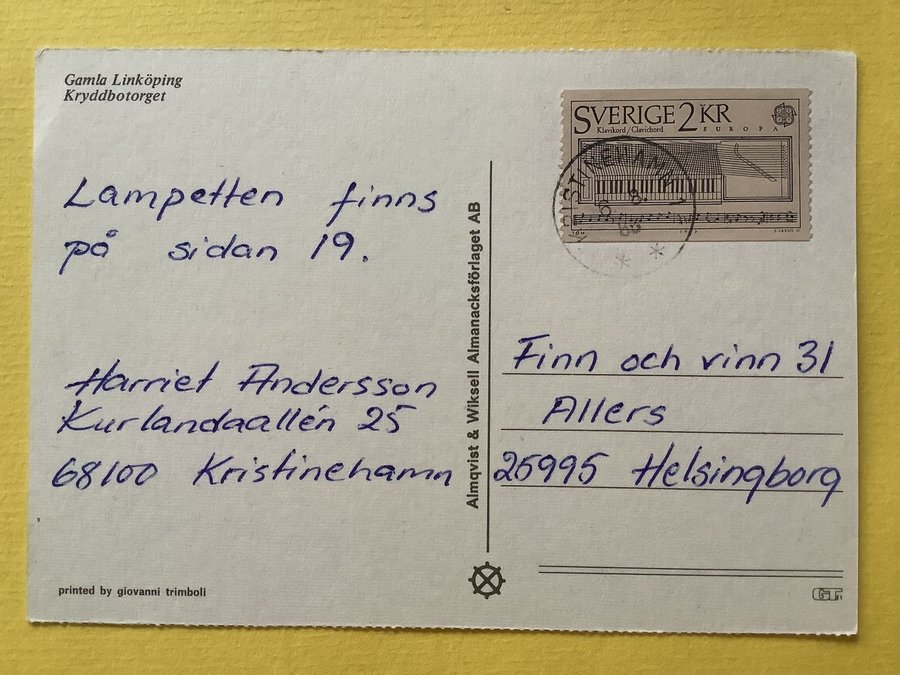 Gamla Linköping
Kryddbotorget
SVERIGE 2 KR
Klavikord/Clavichord EUROPA
KRISTINEHAMN 1
6 8.
Lampetten finns
på sidan 19.
Harriet Andersson
Kurlandaallén 25
68100 Kristinehamn
Almqvist & Wiksell Almanacksförlaget AB
Finn och vinn 31
Allers
25995 Helsingborg
printed by giovanni trimboli
GT